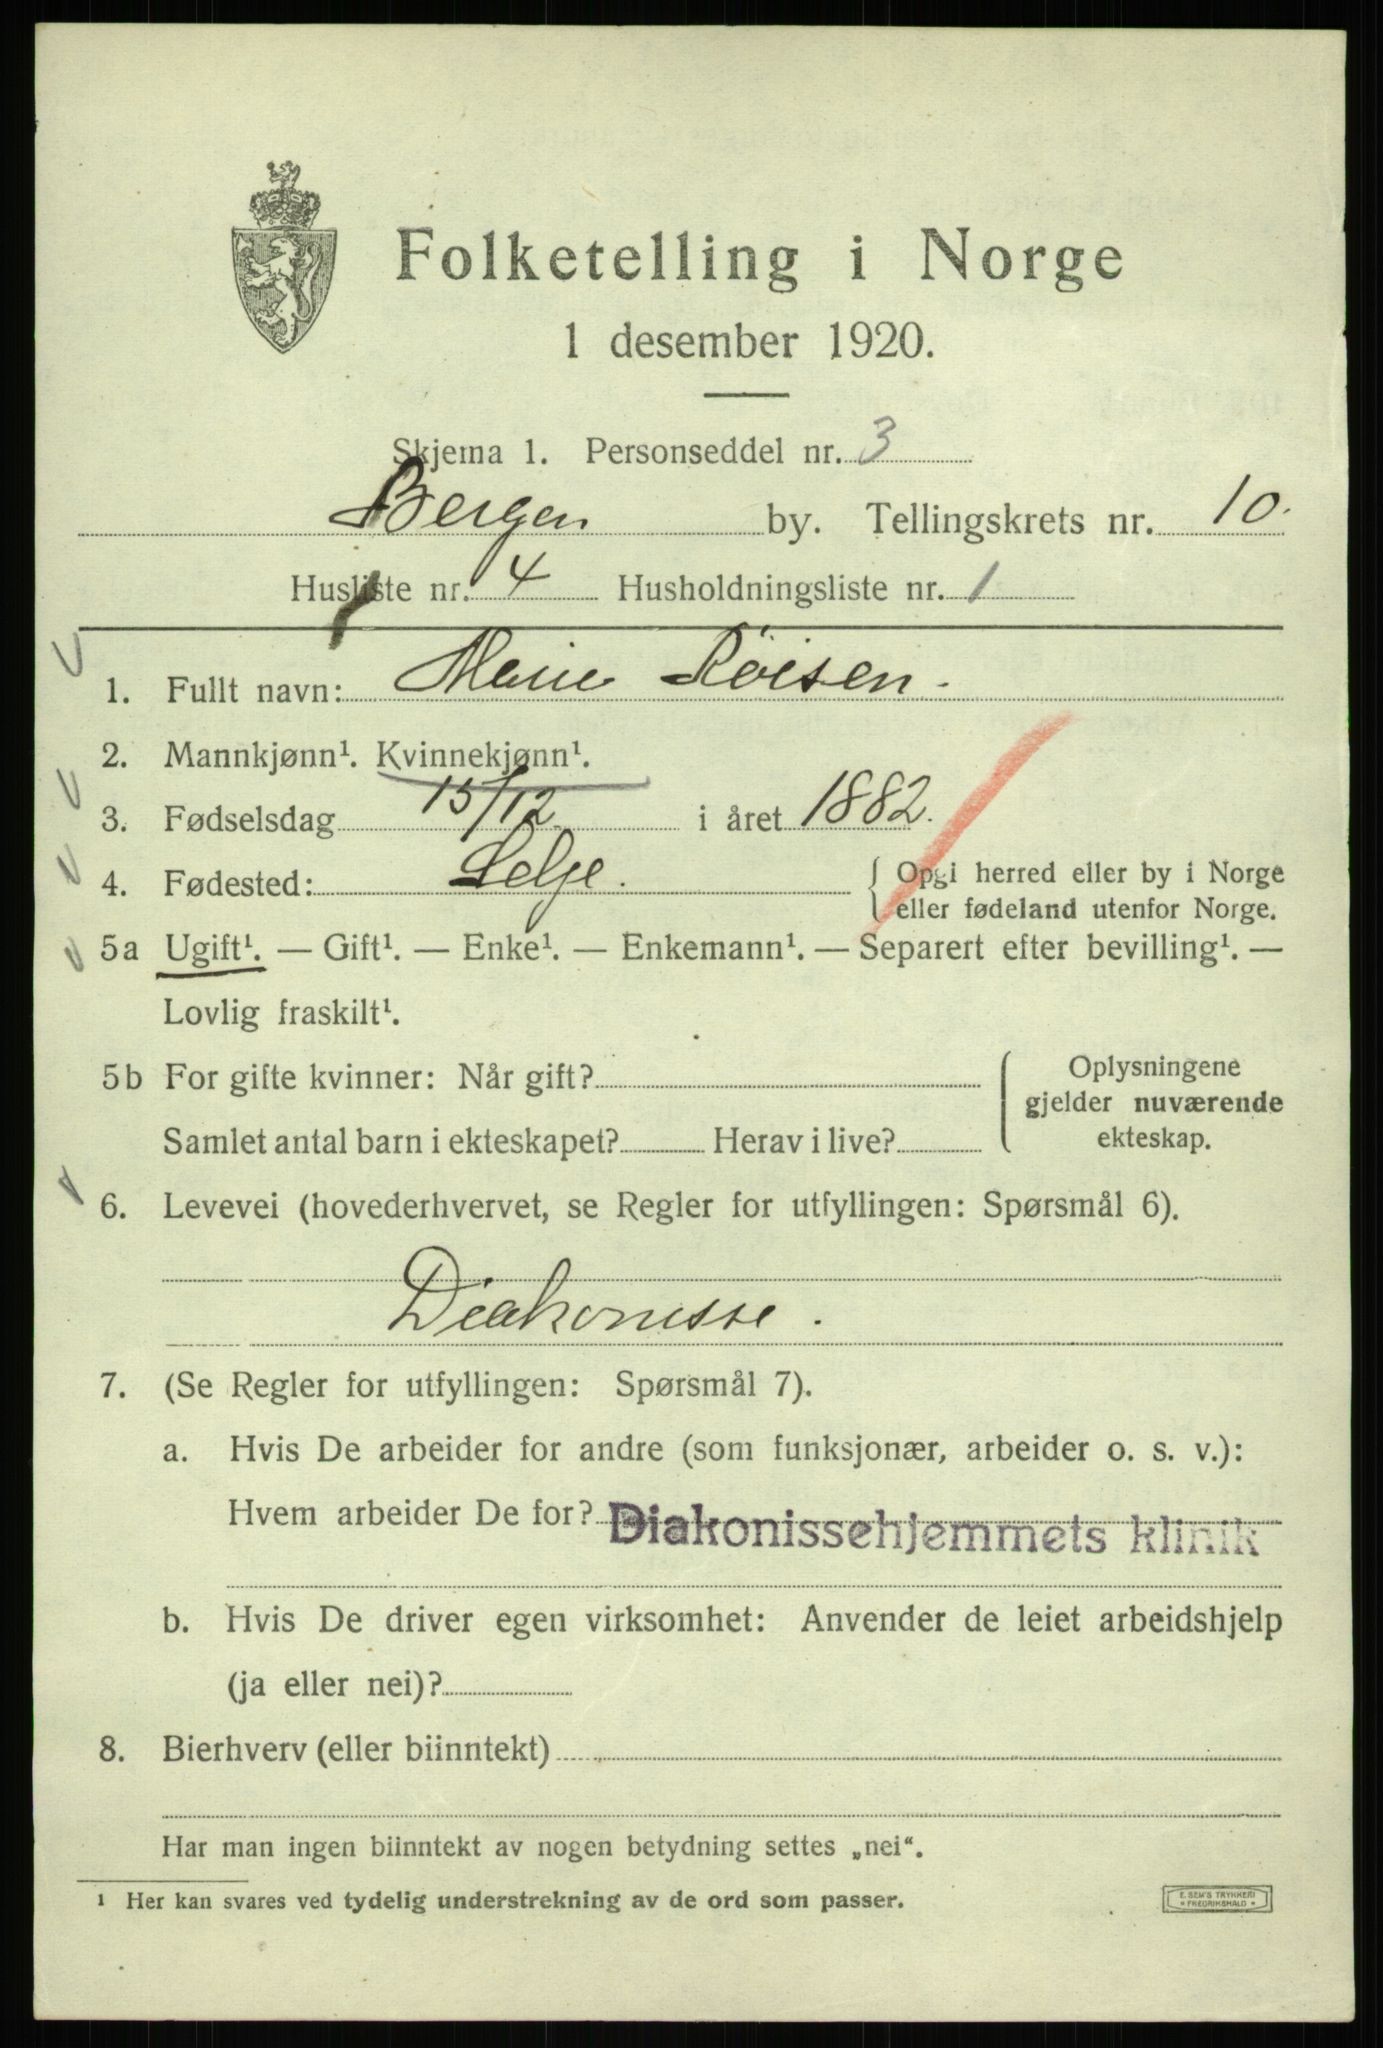 Folketelling i Norge
1 desember 1920.
Skjema 1. Personseddel nr. 3
Bergen by. Tellingskrets nr. 10.
Husliste nr. 4 Husholdningsliste nr. 1
1. Fullt navn: Marie Røisen.
2. Mannkjønn¹. Kvinnekjønn¹.
3. Fødselsdag 15/12 i året 1882.
4. Fødested: Selje. { Opgi herred eller by i Norge
eller fødeland utenfor Norge.
5a Ugift¹. — Gift¹. — Enke¹. — Enkemann¹. — Separert efter bevilling¹. —
Lovlig fraskilt¹.
5b For gifte kvinner: Når gift? { Oplysningene
gjelder nuværende
Samlet antal barn i ekteskapet? Herav i live? ekteskap.
6. Levevei (hovederhvervet, se Regler for utfyllingen: Spørsmål 6).
Diakonisse.
7. (Se Regler for utfyllingen: Spørsmål 7).
a. Hvis De arbeider for andre (som funksjonær, arbeider o. s. v.):
Hvem arbeider De for? Diakonissehjemmets klinik
b. Hvis De driver egen virksomhet: Anvender de leiet arbeidshjelp
(ja eller nei)?
8. Bierhverv (eller biinntekt)
Har man ingen biinntekt av nogen betydning settes „nei“.
¹ Her kan svares ved tydelig understrekning av de ord som passer.
E. SEM'S TRYKKERI
* FREDRIKSHALD *